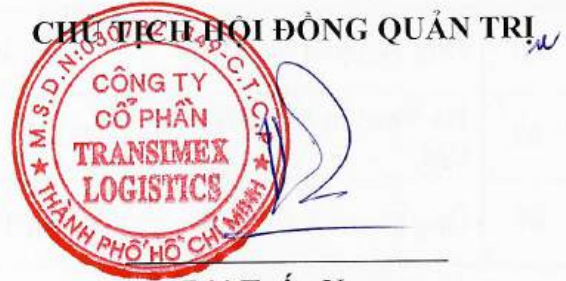 CHỦ TỊCH HỘI ĐỒNG QUẢN TRỊ
M.S.D.N:
C.T.C.P
CÔNG TY
CỔ PHẦN
TRANSIMEX
LOGISTICS
THÀNH PHỐ HỒ CHÍ MINH